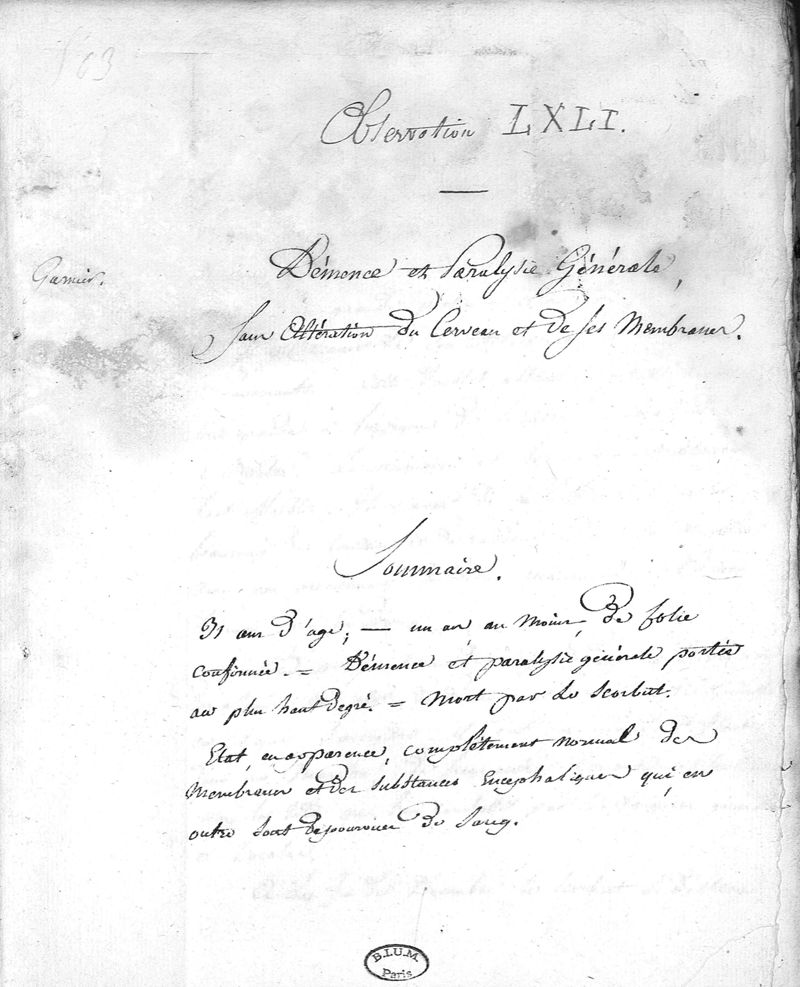 Observation LXLI.
Garnier.
Démence et Paralysie Générale,
Sans Altération du Cerveau et de ses Membranes.
Sommaire.
31 ans d'age; — un an au moins de folie
confirmée. = Démence et paralysie générale portées
au plus haut degré. = Mort par le scorbut.
Etat, en apparence, complètement normal des
Membranes et des substances Encephaliques qui, en
outre sont dépourvues de sang.
B.I.U.M.
Paris